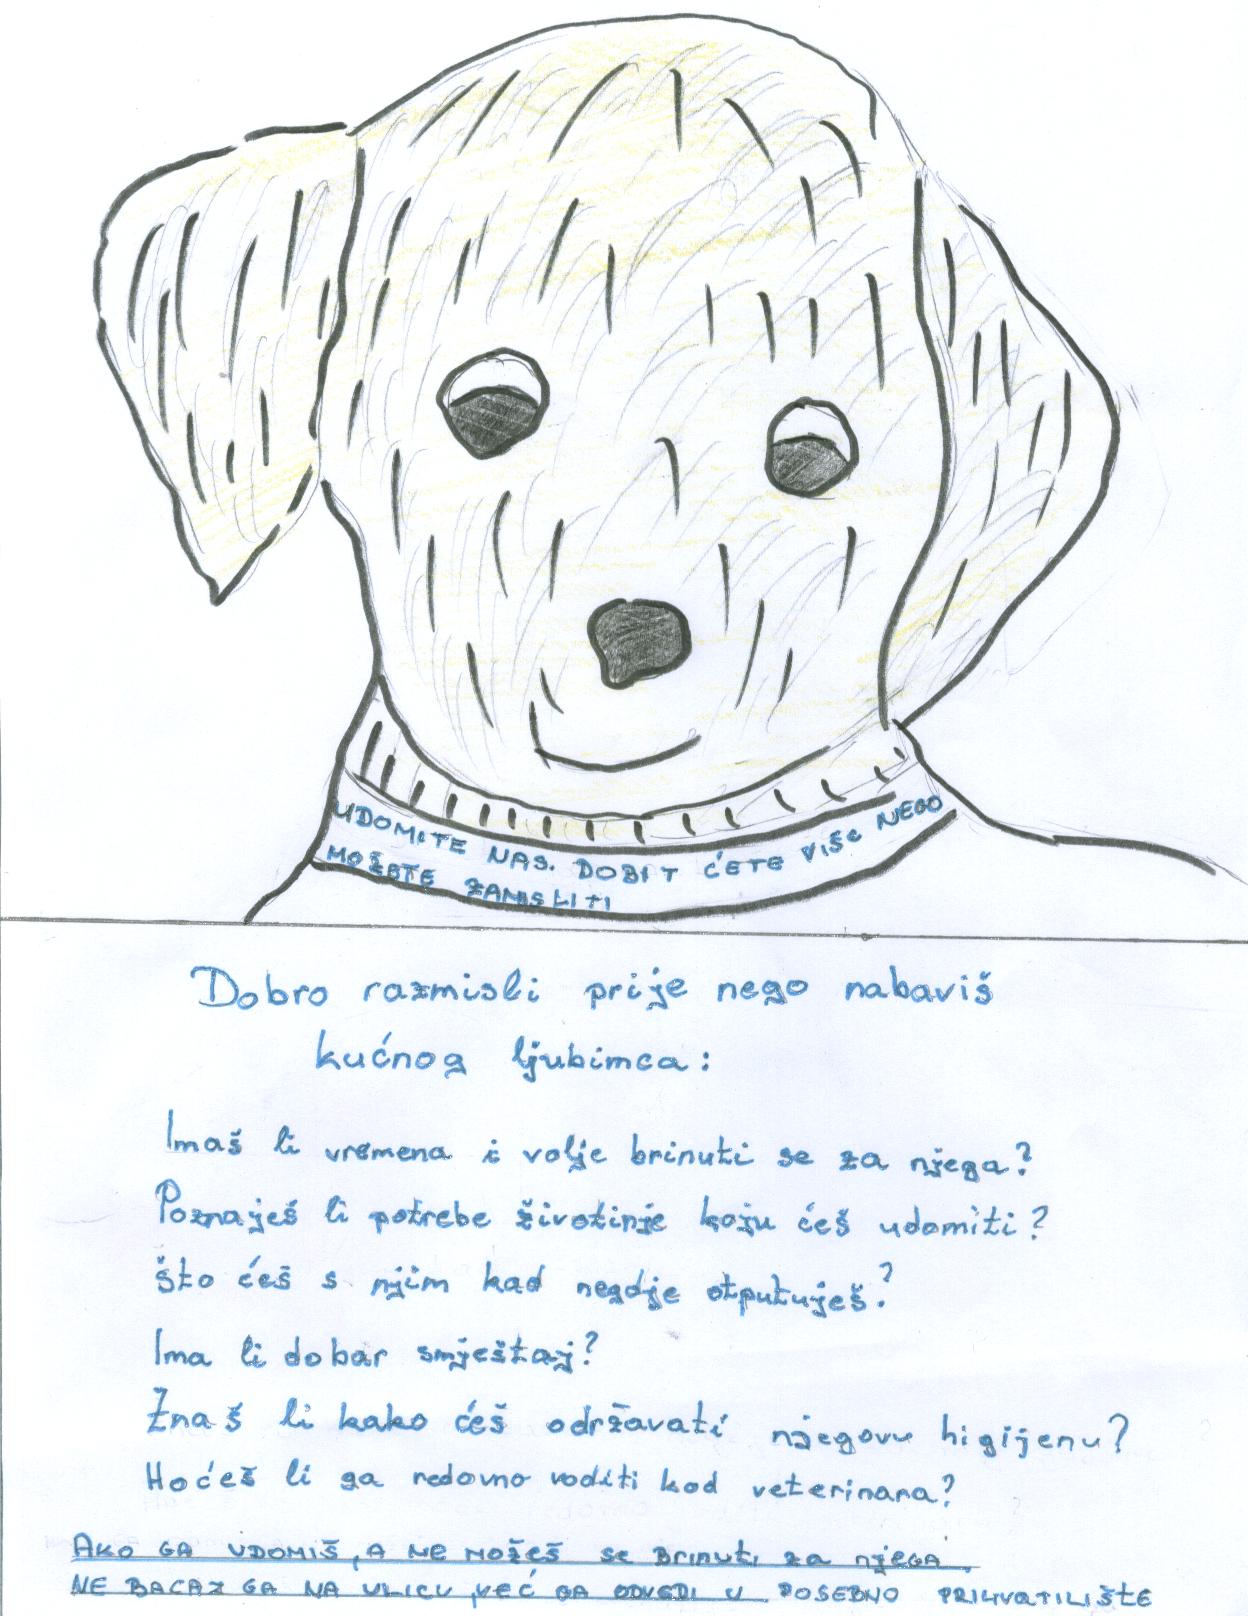 UDOMITE NAS. DOBIT ĆETE VIŠE NEGO
MOŽETE ZAMISLITI
Dobro razmisli prije nego nabaviš
kućnog ljubimca:
Imaš li vremena i volje brinuti se za njega?
Poznaješ li potrebe životinje koju ćeš udomiti?
što ćeš s njim kad negdje otputuješ?
Ima li dobar smještaj?
Znaš li kako ćeš održavati njegovu higijenu?
Hoćeš li ga redovno voditi kod veterinara?
AKO GA UDOMIŠ, A NE MOŽEŠ se Brinuti za njEGA,
NE BACAJ GA NA ULICU, VEĆ GA ODVEDI U POSEBNO PRIHVATILIŠTE